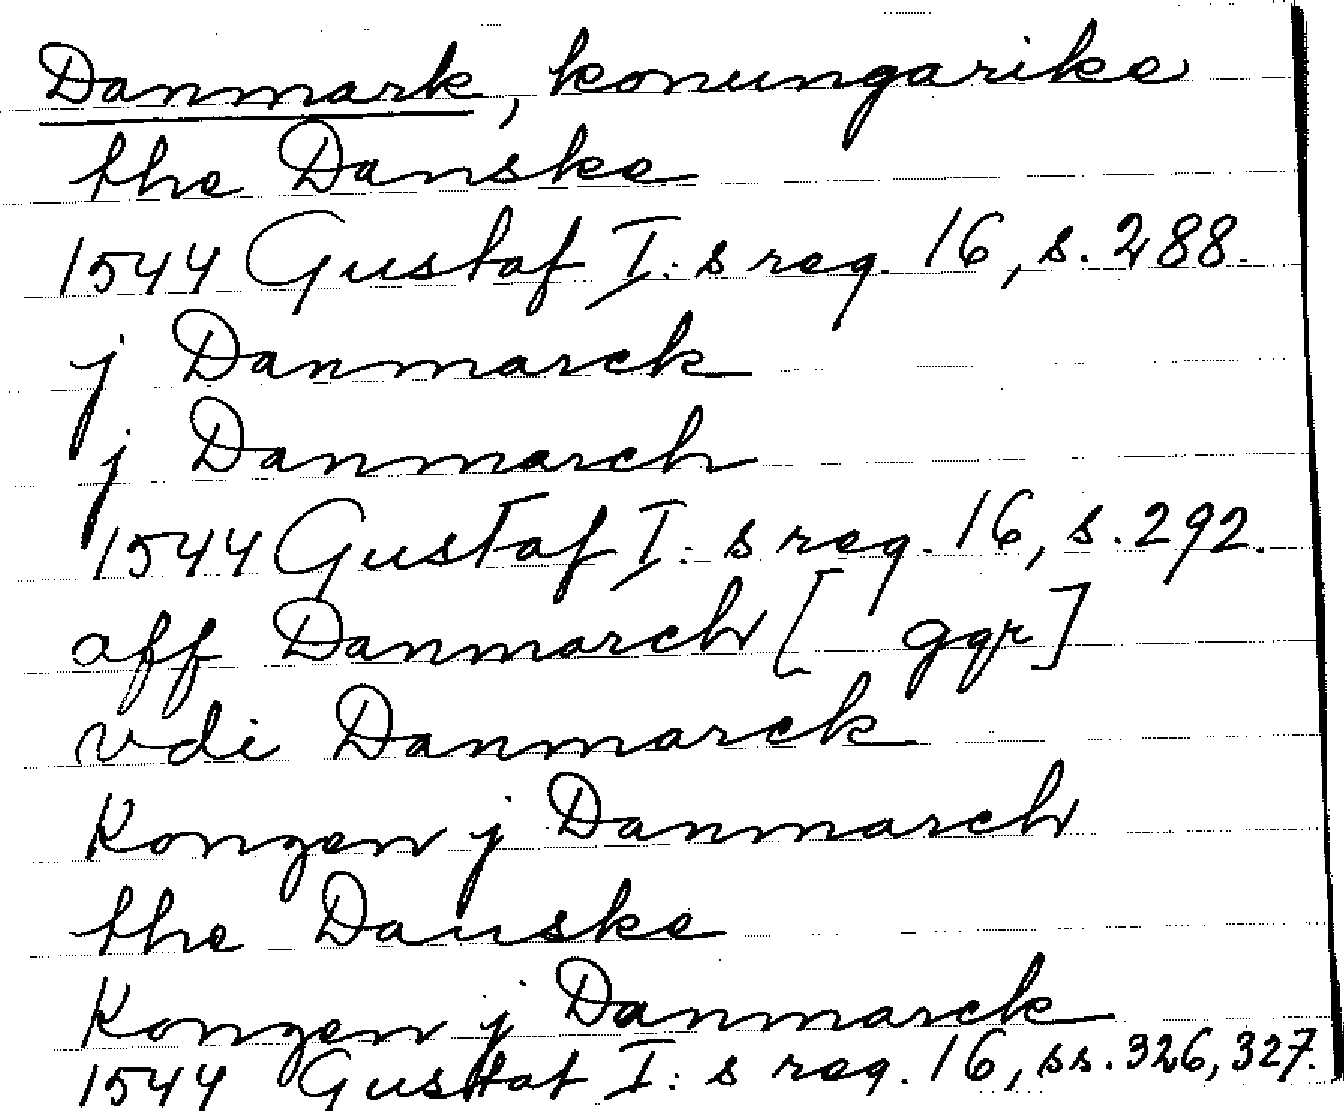 Danmark, konungarike
the Danske
1544 Gustaf I:s reg. 16, s. 288.
j Danmarck
j Danmarch
1544 Gustaf I:s reg. 16, s. 292.
aff Danmarch [ ggr]
vdi Danmarck
Kongen j Danmarch
the Danske
Kongen j Danmarck
1544 Gustaf I:s reg. 16, ss. 326, 327.